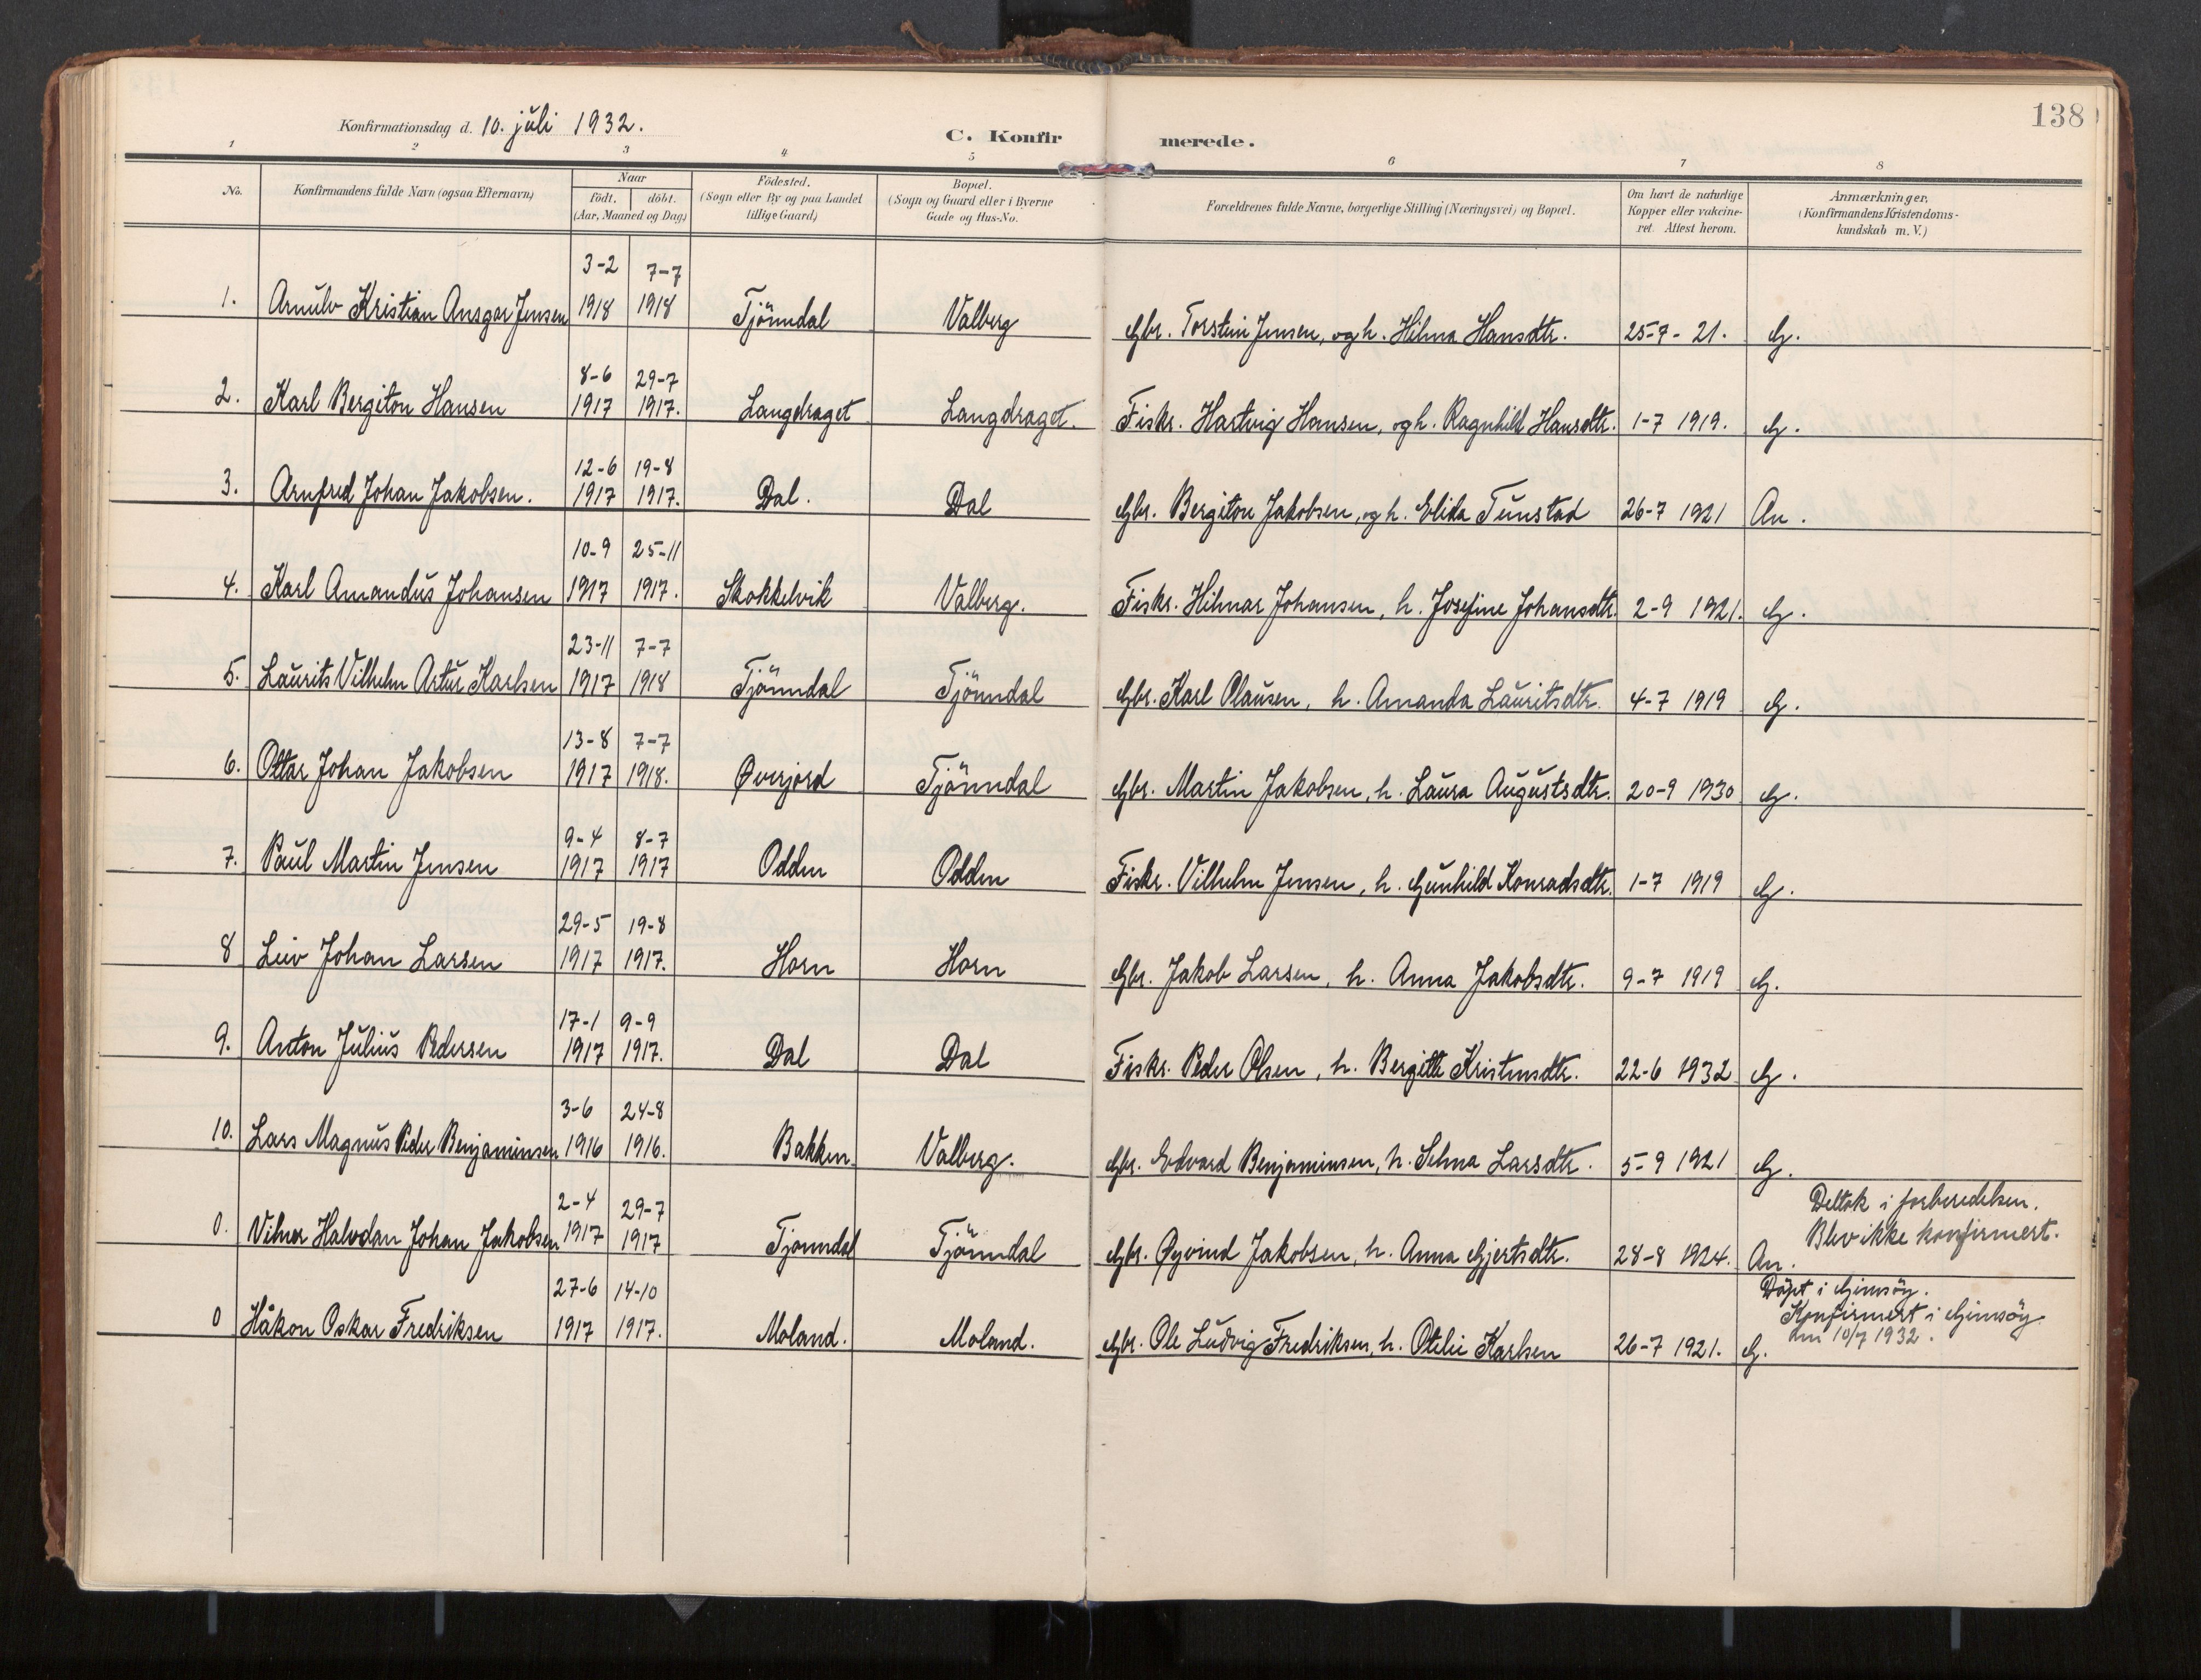 138
Konfirmationsdag d. 10. juli 1932.
C. Konfirmerede.
1 2 3 4 5 6 7 8
No. Konfirmandens fulde Navn (ogsaa Efternavn) Naar födt. döbt. (Aar, Maaned og Dag) Födested. (Sogn eller By og paa Landet tillige Gaard) Bopæl. (Sogn og Gaard eller i Byerne Gade og Hus-No. Forældrenes fulde Navne, borgerlige Stilling (Næringsvei) og Bopæl. Om havt de naturlige Kopper eller vakcineret. Attest herom. Anmærkninger. (Konfirmandens Kristendomskundskab m.V.)
1. Arnulv Kristian Ansgar Jensen 3-2 1918 7-7 1918 Tjönndal Valberg Gbr. Torstein Jensen, og h. Hilma Hansdtr. 25-7-21. G.
2. Karl Bergiton Hansen 8-6 1917 29-7 1917. Langdraget Langdraget. Fiskr. Hartvig Hansen, og h. Ragnhild Hansdtr. 1-7 1919. G.
3. Arnfred Johan Jakobsen. 12-6 1917 19-8 1917. Dal. Dal Gbr. Bergiton Jakobsen, og h. Elida Tunstad 26-7 1921 An.
4. Karl Amandus Johansen 10-9 1917 25-11 1917. Skokkelvik Valberg. Fiskr. Hilmar Johansen, h. Josefine Johansdtr. 2-9 1921. G.
5. Laurits Vilhelm Artur Karlsen 23-11 1917 7-7 1918 Tjönndal Tjönndal Gbr. Karl Olausen, h. Amanda Lauritsdtr. 4-7 1919 G.
6. Ottar Johan Jakobsen 13-8 1917 7-7 1918. Øverjord Tjönndal Gbr. Martin Jakobsen, h. Laura Augustsdtr. 20-9 1930 G.
7. Paul Martin Jensen 9-4 1917 8-7 1917 Odden Odden Fiskr. Vilhelm Jensen, h. Gunhild Konradsdtr. 1-7 1919 G.
8 Leiv Johan Larsen 29-5 1917 19-8 1917. Horn Horn Gbr. Jakob Larsen, h. Anna Jakobsdtr. 9-7 1919 G.
9. Anton Julius Pedersen 17-1 1917 9-9 1917. Dal Dal Fiskr. Peder Olsen, h. Bergitte Kristensdtr. 22-6 1932 G.
10. Lars Magnus Peder Benjaminsen 3-6 1916 24-8 1916. Bakken. Valberg. Gbr. Edvard Benjaminsen, h. Selma Larsdtr. 5-9 1921 G.
0. Vilmar Halvdan Johan Jakobsen 2-4 1917 29-7 1917 Tjonndal Tjönndal Gbr. Øyvind Jakobsen, h. Anna Gjertsdtr. 28-8 1924. An. Deltok i forberedelsen. Blev ikke konfirmert.
0 Håkon Oskar Fredriksen 27-6 1917 14-10 1917. Moland. Moland. Gbr. Ole Ludvig Fredriksen, h. Otelie Karlsen 26-7 1921. G. Döpt i Gimsöy. Konfirmert i Gimsöy den 10/7 1932.